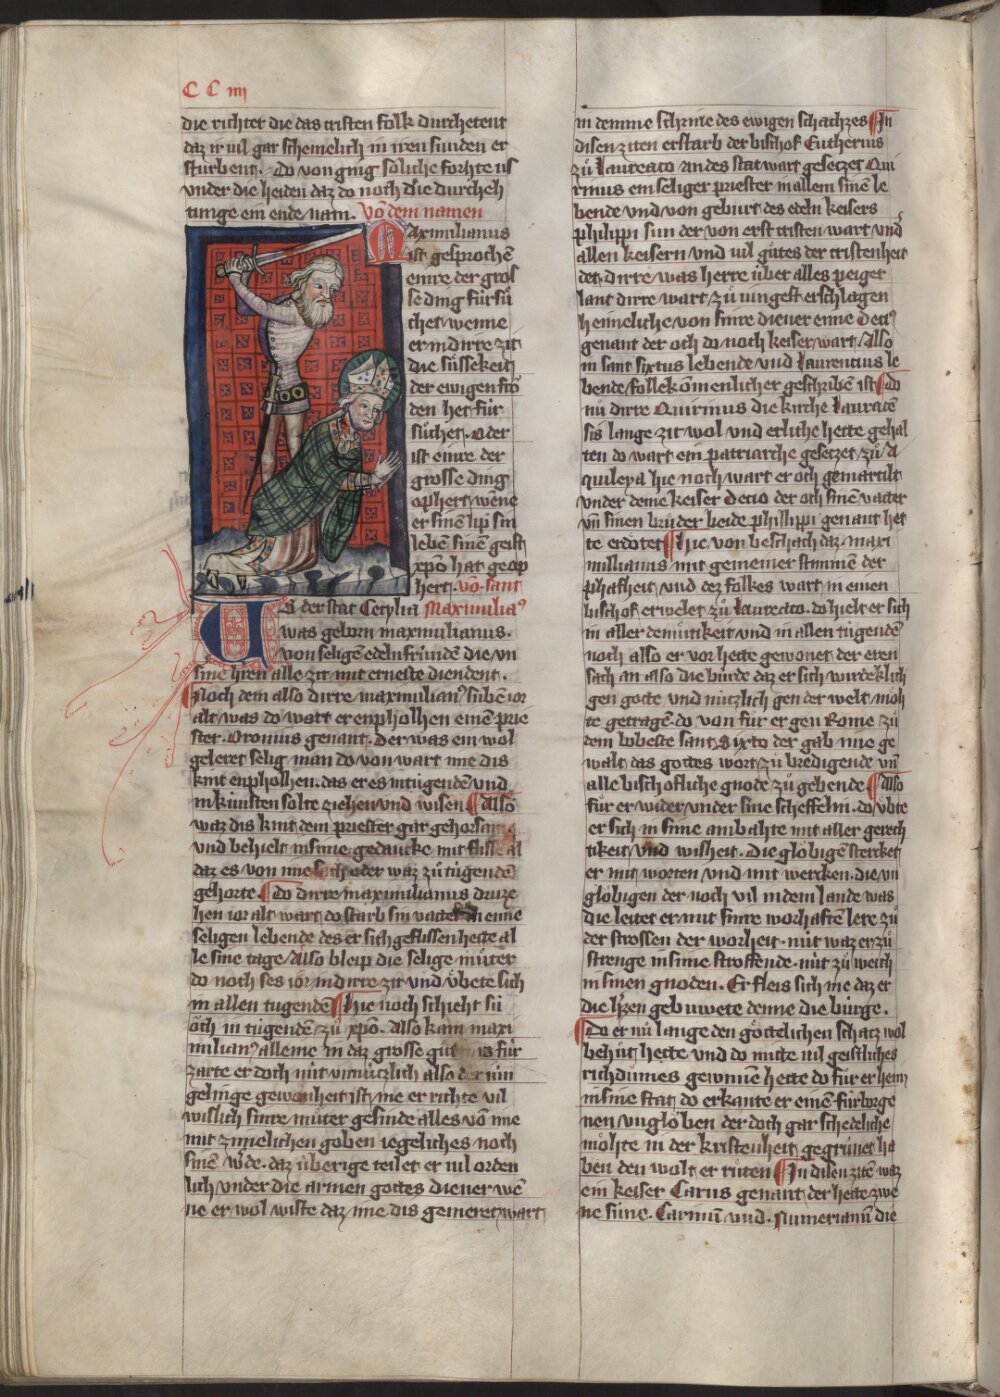 C C iiii
die richter die das cristen folk durchetent
daz ir vil gar schemelich in iren sunden er
sturbent. Do von ging soliche forhte us
vnder die heiden daz do noch die durcheh
tunge ein ende nam. Võ dem namen
Maximilianus
ist gesprochẽ
einre der gros
se ding fúr sů
chet wenne
er in dirre zit
die sússekeit
der ewigen frő
den het fúr
sůchet. Oder
ist einre der
grosse ding
ophert. wẽne
er sinẽ lip sin
lebẽ sinẽ geist
xp̃o hat geop
hert. võ sant
In der stat Cecylia Maximilia⁹
was geborn maximilianus.
von seligẽ edeln frúndẽ die vn
sme hren alle zit mit erneste diendent.
Noch dem also dirre maximilian⁹ súben ior
alt was do wart er enpholhen einẽ prie
ster. Oronius genant. der was ein wol
geleret selig man do von wart ime dis
kint enpholhen. das er es in tugenden vnd
in kúnsten solte ziehen vnd wisen Also
waz dis kint dem priester gar gehorsam
vnd behielt in sinme gedancke mit flisse al
daz es von ime sach oder waz zů tugendẽ
gehorte. Do dirre maximilianus druze
hen ior alt wart do starb sin vatter in eime
seligen lebende des er sich geflissen hette al
le sine tage. Also bleip die selige můter
do noch ses ior in dirre zit vnd ůbete sich
in allen tugendẽ Hie noch schieht sú
őch in tugendẽ zů xp̃o. Also kam maxi
milian⁹ alleine in daz grosse gůt daz fůr
zarte er doch nút vnnúczlich also der nun
gelinge gewonheit ist, me er richte vil
wislich sinre můter gesinde alles võ ime
mit zimelichen goben iegeliches noch
sinẽ wͤde. daz úberige teilet er vil orden
lich vnder die armen gottes diener wẽ
ne er wol wiste daz ime dis gemeret wart
in demme schrine des ewigen schaczes In
disen ziten erstarb der bischof Eutherius
zů laureato an des stat wart gesetzet Qui
rinus ein seliger priester in allem sinẽ le
bende vnd von geburt des edeln keisers
philippi sun der von erst cristen wart vnd
allen keisern vnd vil gůtes der cristenheit
det. dirre was herre úber alles peiger
lant dirre wart zů iungest erschlagen
heimeliche von sinre diener eime Deci⁹
genant der och do noch keiser wart. Also
in sant sixtus lebende vnd laurencius le
bende follekomenlicher geschribẽ ist do
nů dirre Quirinus die kirche lauratẽ
sis lange zit wol vnd erliche hette gehal
ten do wart ein patriarche gesetzet zů A
quileya hie noch wart er och gemartilt
vnder deme keiser Decio der och sinẽ vatter
vñ sinen brůder beide phillippi genant het
te erdőtet Hie von beschach daz maxi
millianus mit gemeiner stimmen der
phafheit vnd dez folkes wart in einen
bischof erwelet zů laureato. do hielt er sich
in aller demůtikeit vnd in allen tugendẽ
noch also er vor hette gewonet. der eren
sach an also die búrde daz er sich wirdeklich
gen gotte vnd nútzlich gen der welt moh
te getragẽ do von fůr er gen Rome zů
dem bobeste sant Sixto der gab ime ge
walt das gottes wort zů bredigende vñ
alle bischofliche gnode zů gebende Also
fůr er wider vnder sine scheffelin. do ůbte
er sich in sinne ambahte mit aller gerech
tikeit vnd wisheit. Die glőbigẽ sterket
er mit worten vnd mit wercken. die vn
glőbigen der noch vil in dem lande was
die leitet er mit sinre worhaftẽ lere zů
der strossen der worheit. nút waz er zů
strenge in sinne stroffende. nút zů weich
in sinen gnoden. Er fleis sich me daz er
die hͤzen gebuwete denne die búrge.
Do er nů lange den gőttelichen schatz wol
behůt hette vnd do mitte vil geistliches
richdůmes gewunnẽ hette do fůr er heim
in sine stat do erkante er einẽ fúrborge
nen vnglőben der doch gar schedeliche
mőhte in der kristenheit gegrúnet ha
ben den wolt er rúten In disen zitẽ waz
ein keiser Carus genant der hette zwe
ne súne. Carinũ vnd. Numerianũ die